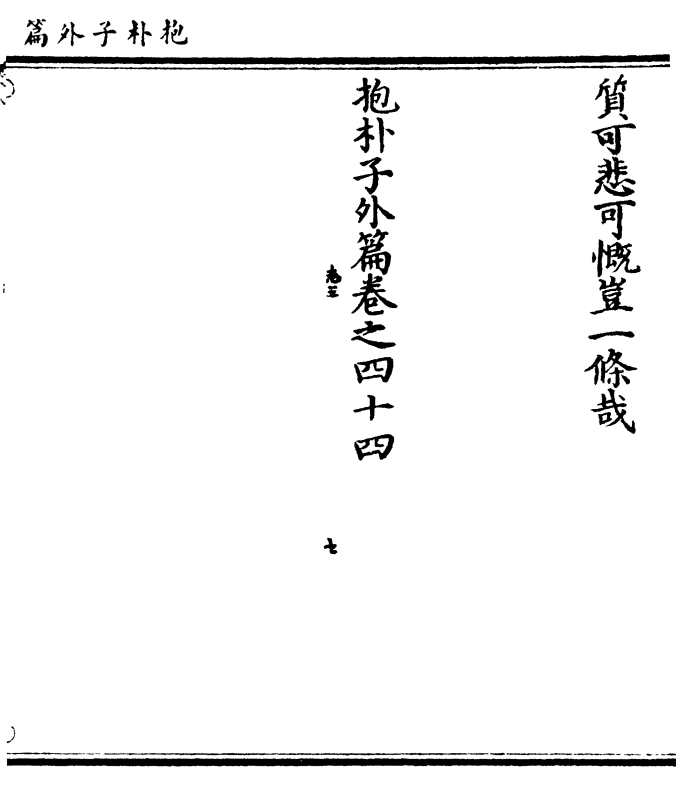 抱朴子外篇
質可悲可慨豈一條哉
抱朴子外篇卷之四十四
卷三
七